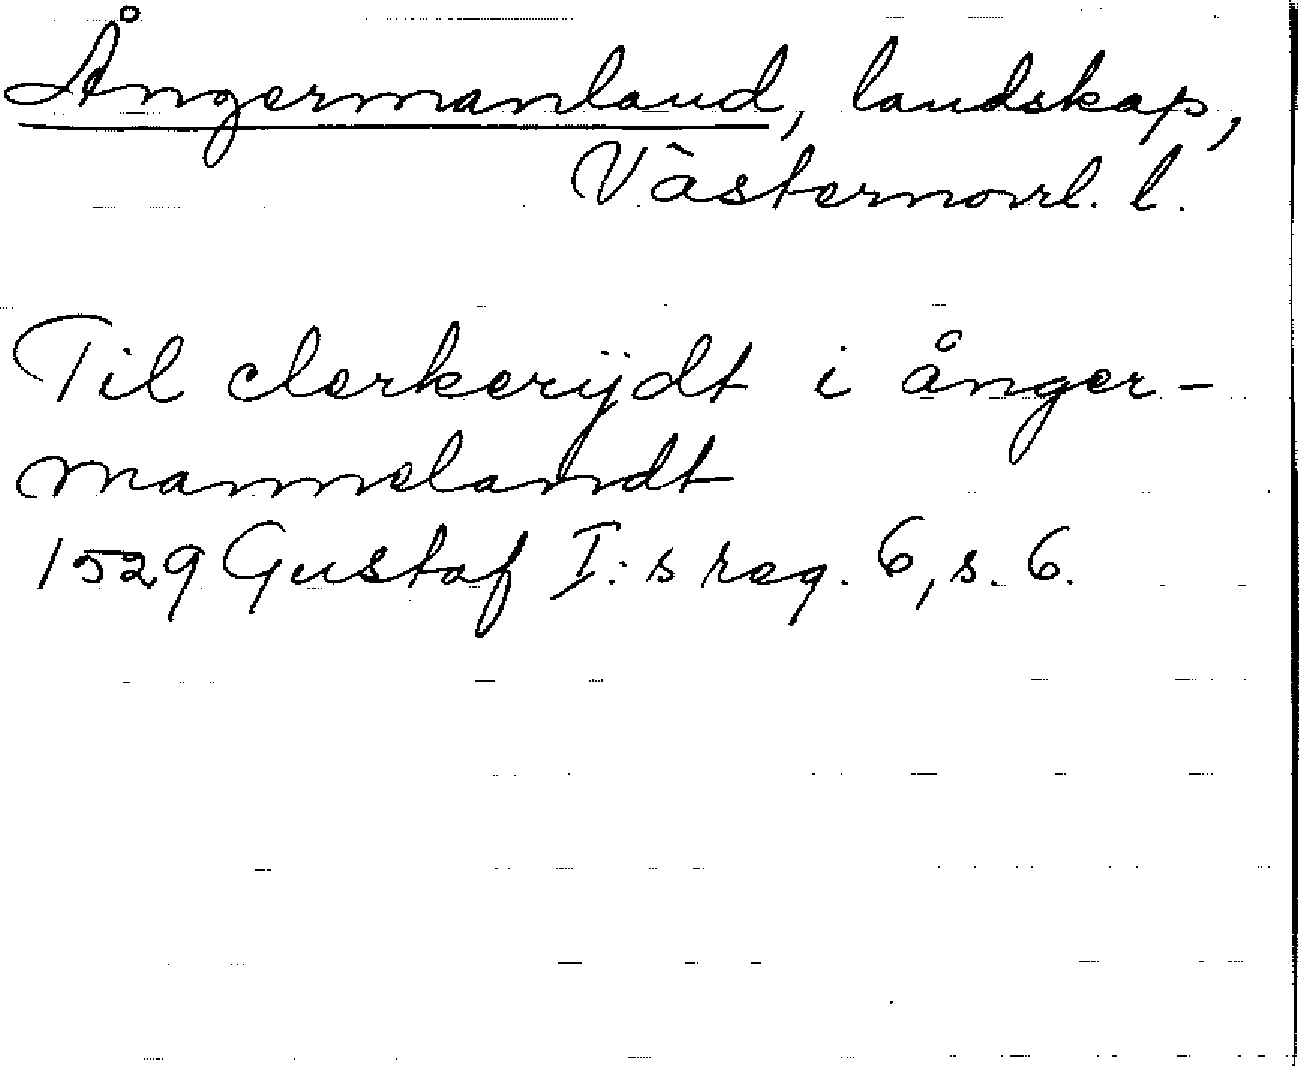 Ångermanland, landskap,
Västernorrl. l.
Til clerkerijdt i ånger-
mannelandt
1529 Gustaf I:s reg. 6, s. 6.